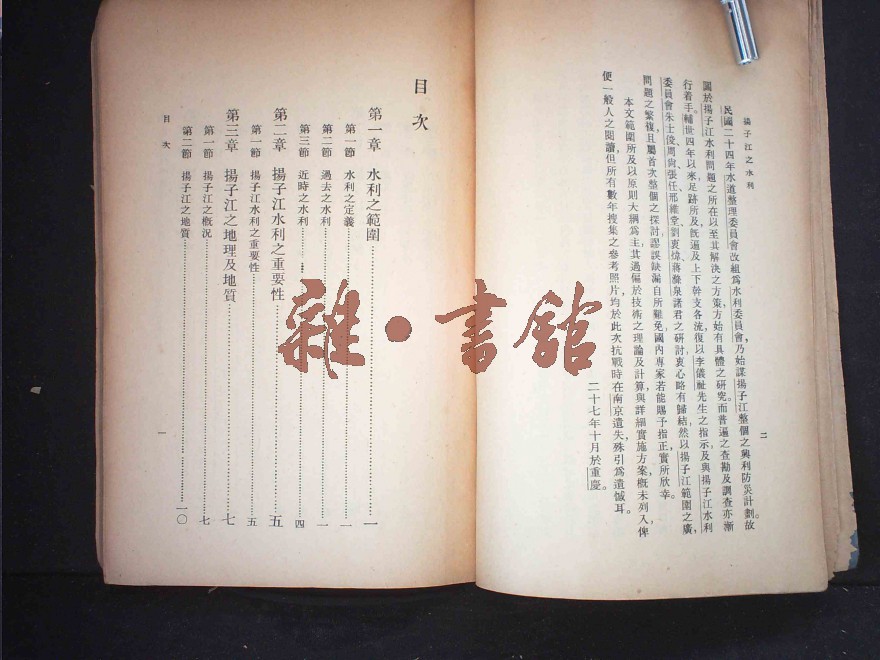 揚子江之水利
二
民國二十四年水道整理委員會改組爲水利委員會,乃始謀揚子江整個之興利防災計劃。故
關於揚子江水利問題之所在以至其解決之方策,方始有具體之研究。而普遍之查勘及調查亦漸
行着手。輔世四年以來足跡所及旣遍及上下幹支各流,復以李儀祉先生之指示及與揚子江水利
委員會朱士俊、周尙、張任、邢維堂、劉衷煒、蔣滌泉諸君之研討,衷心略有歸結。然以揚子江範圍之廣,
問題之繁複,且屬首次整個之探討,謬誤缺漏自所難免,國內專家若能賜予指正,實所欣幸。
本文範圍所及以原則大綱爲主,其過偏於技術之理論及計算,與詳細實施方案,槪未列入,俾
便一般人之閱讀。但所有數年搜集之參考照片,均於此次抗戰時在南京遺失,殊引爲遺憾耳。
二十七年十月於重慶。
目次
第一章 水利之範圍 一
第一節 水利之定義 一
第二節 過去之水利 一
第三節 近時之水利 四
第二章 揚子江水利之重要性 五
第一節 揚子江水利之重要性 五
第三章 揚子江之地理及地質 七
第一節 揚子江之槪況 七
第二節 揚子江之地質 一〇
目次
一
雜·書館